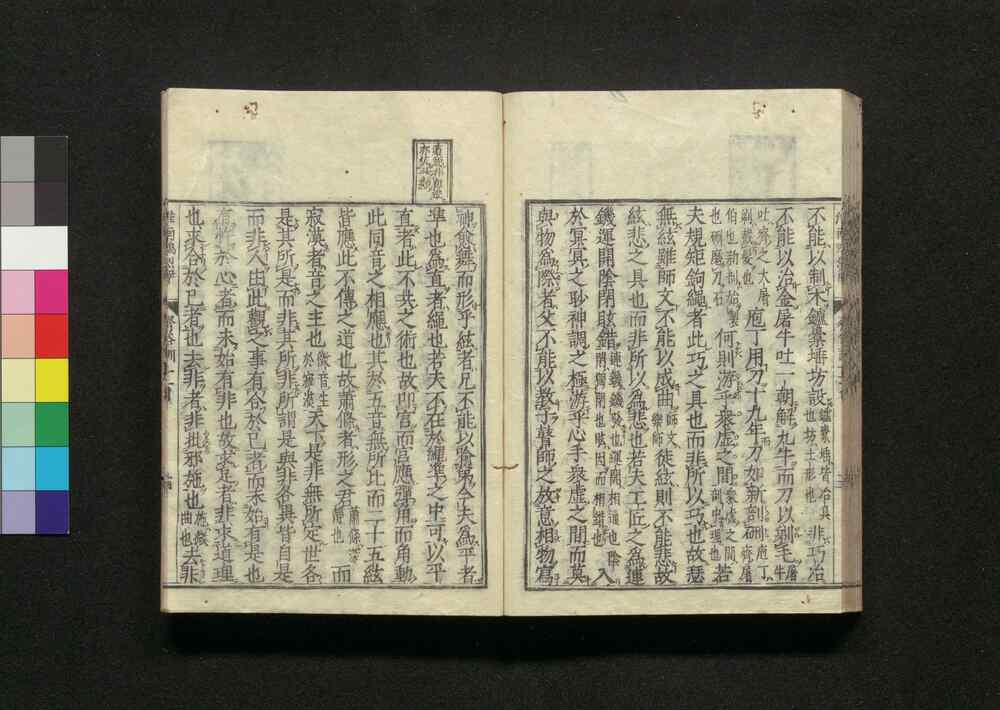 不能以制木鑪橐埵坊設鑪橐埵皆冶具也坊土形也非巧冶
不能以治金屠牛吐一朝解九牛而刀以剃毛屠牛
吐齊之大屠剃截髮也庖丁用刀十九年而刀如新剖硎庖丁齊屠
伯也剖制始製也硎磨刀石何則游乎衆虛之間衆虛之間剖中理也若
夫規矩鉤繩者此巧之具也而非所以巧也故瑟
無絃雖師文不能以成曲師文樂師徒絃則不能悲故
絃悲之具也而非所以爲悲也若夫工匠之爲連
鐖運開陰閉眩錯連鐖鐖發也運開相通也陰閉獨閉也眩因而相錯也入
於冥冥之眇神調之極游乎心手衆虛之間而莫
與物爲際者父不能以教子瞽師之放意相物寫
神愈舞而形乎絃者兄不能以喻弟今夫爲平者
準也爲直者繩也若夫不在於繩準之中可以平
直者此不共之術也故叩宮而宮應彈角而角動
此同音之相應也其於五音無所比而二十五絃
皆應此不傳之道也故蕭條者形之君蕭條深靜也而
寂漠者音之主也微音生於寂漠天下是非無所定世各
是其所是而非其所非所謂是與非各異皆自是
而非人由此觀之事有合於己者而未始有是也
有忤於心者而未始有非也故求是者非求道理
也求合於己者也去非者非批邪施也施微曲也去非